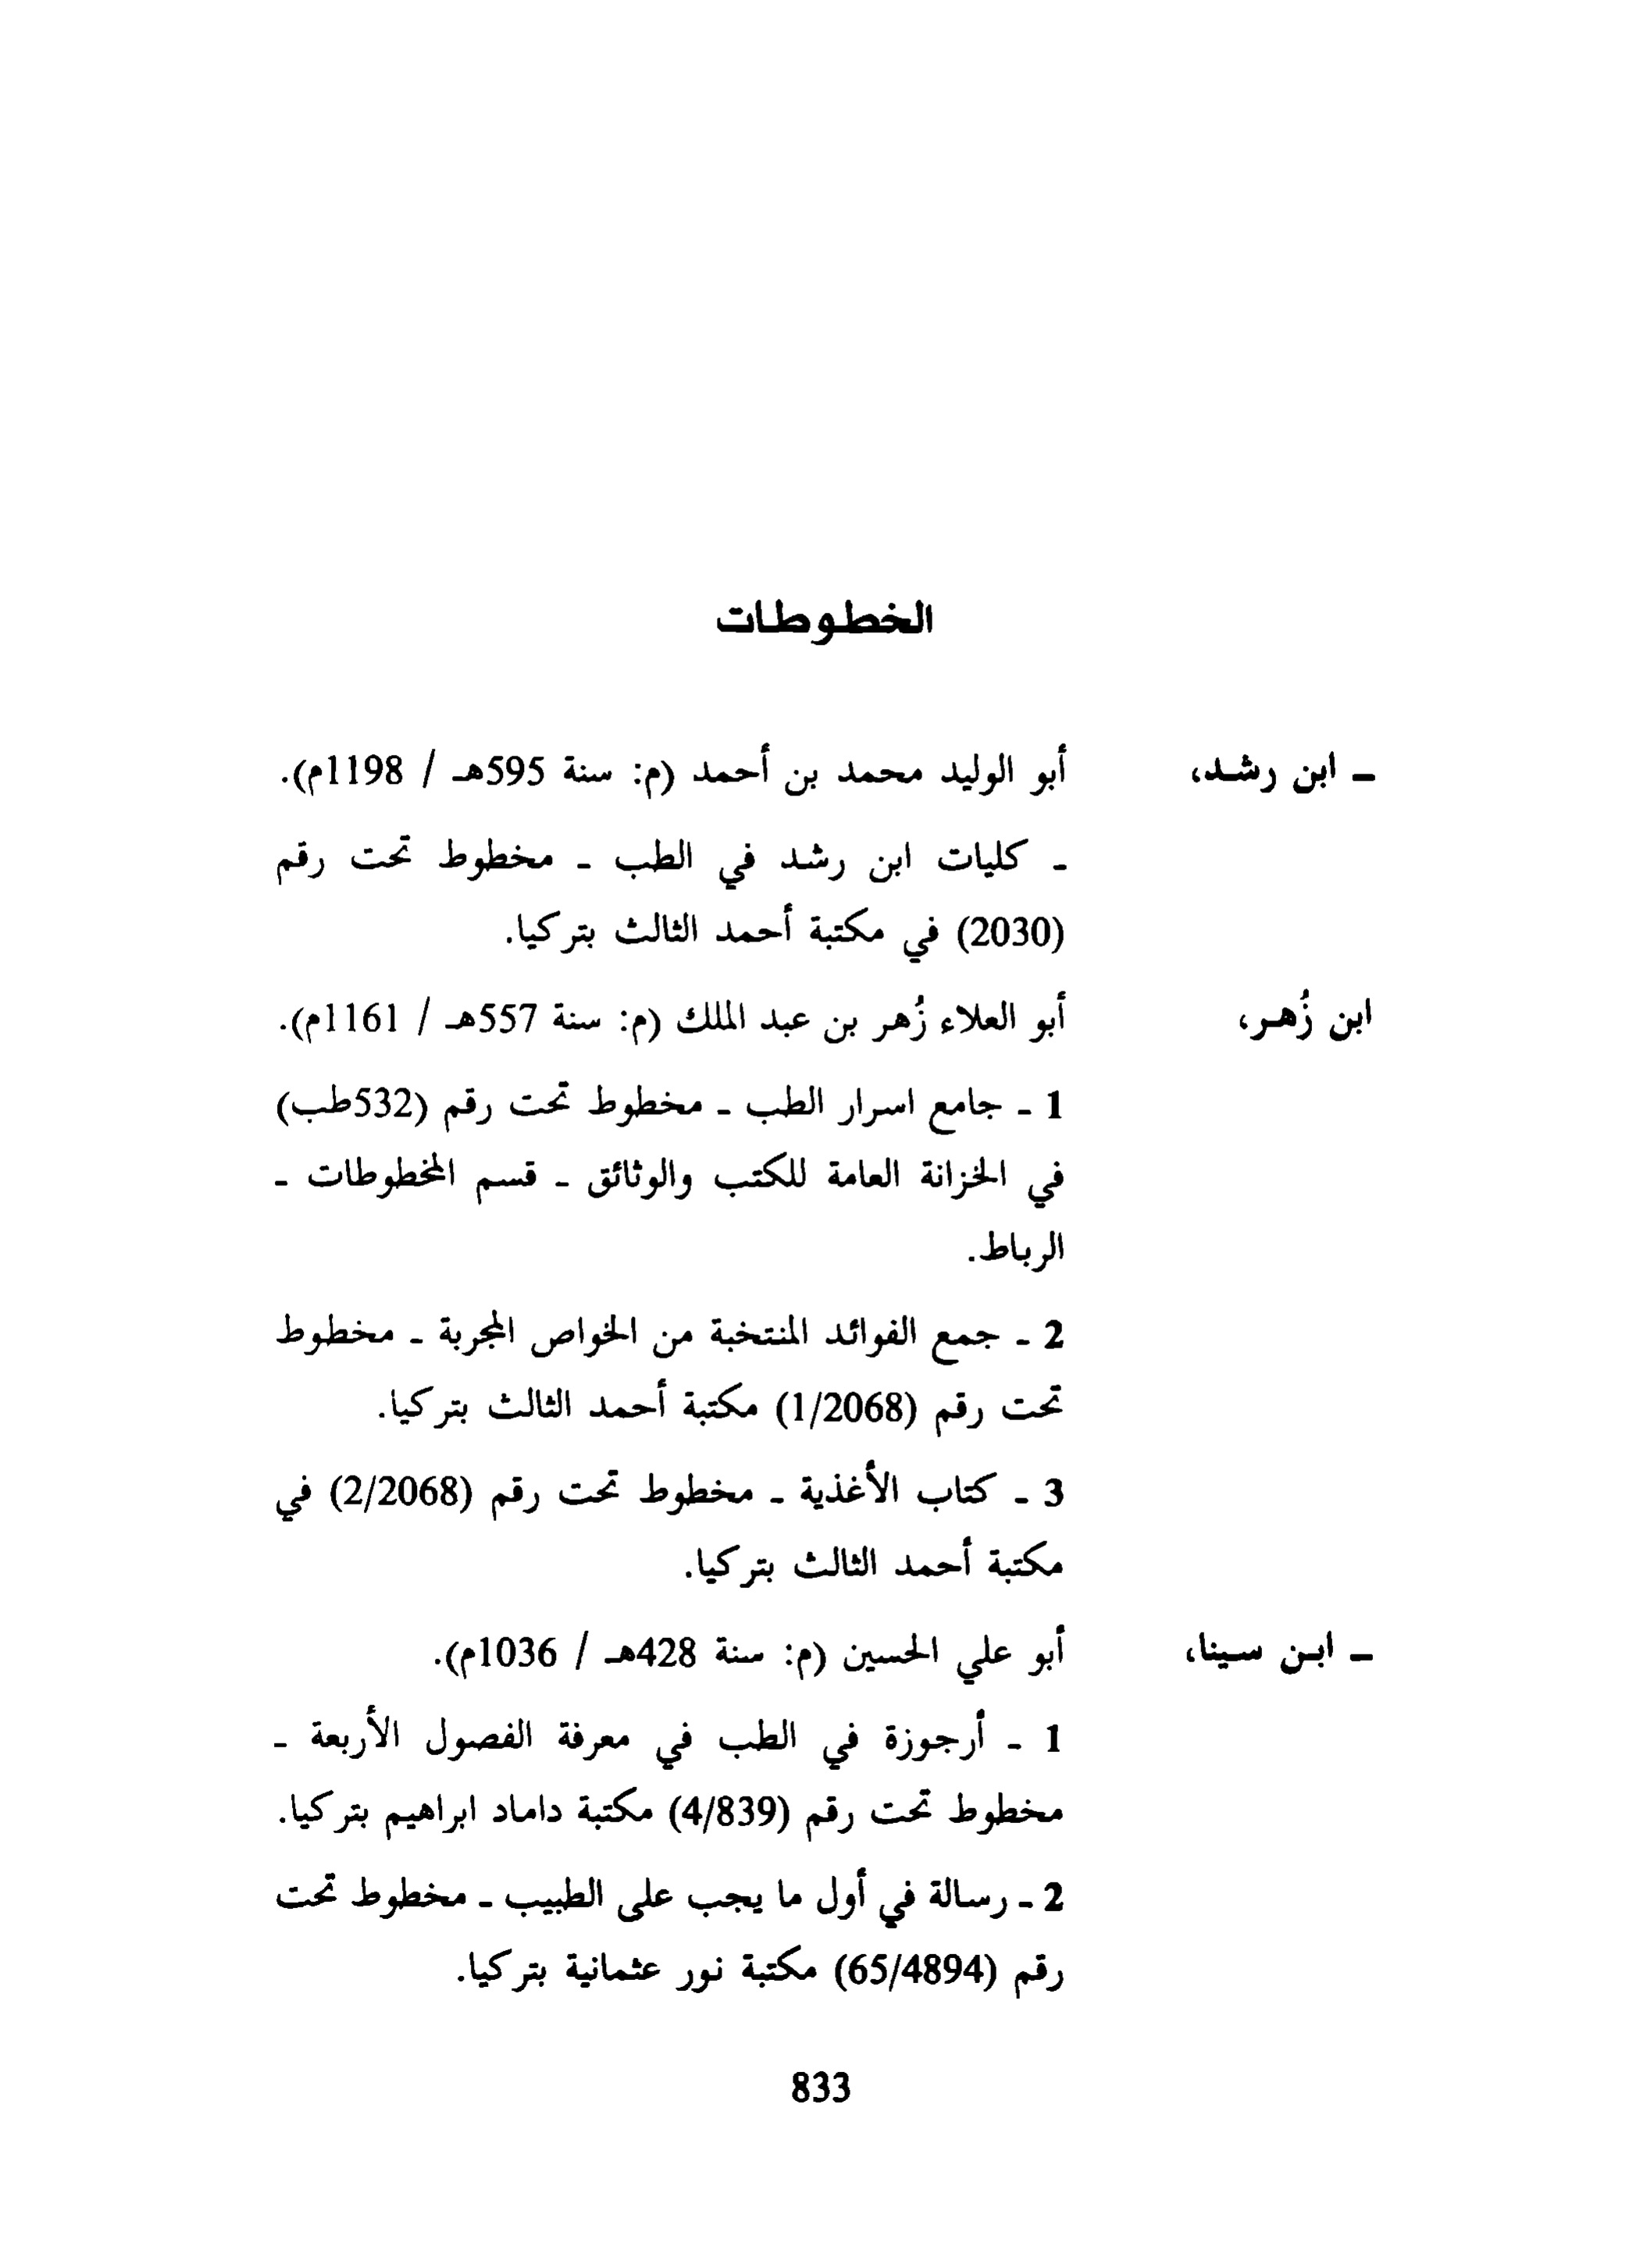 الخطوطات
ـ ابن رشد، أبو الوليد محمد بن أحمد (م: سنة 595هـ / 1198م).
ـ كليات ابن رشد في الطب ـ مخطوط تحت رقم
(2030) في مكتبة أحمد الثالث بتركيا.
ابن زُهر، أبو العلاء زُهر بن عبد الملك (م: سنة 557هـ / 1161م).
1 ـ جامع اسرار الطب ـ مخطوط تحت رقم (532طب)
في الخزانة العامة للكتب والوثائق ـ قسم المخطوطات ـ
الرباط.
2 ـ جمع الفوائد المنتخبة من الخواص المجربة ـ مخطوط
تحت رقم (1/2068) مكتبة أحمد الثالث بتركيا.
3 ـ كتاب الأغذية ـ مخطوط تحت رقم (2/2068) في
مكتبة أحمد الثالث بتركيا.
ـ ابن سينا، أبو علي الحسين (م: سنة 428هـ / 1036م).
1 ـ أرجوزة في الطب في معرفة الفصول الأربعة ـ
مخطوط تحت رقم (4/839) مكتبة داماد ابراهيم بتركيا.
2 ـ رسالة في أول ما يجب على الطبيب ـ مخطوط تحت
رقم (65/4894) مكتبة نور عثمانية بتركيا.
833